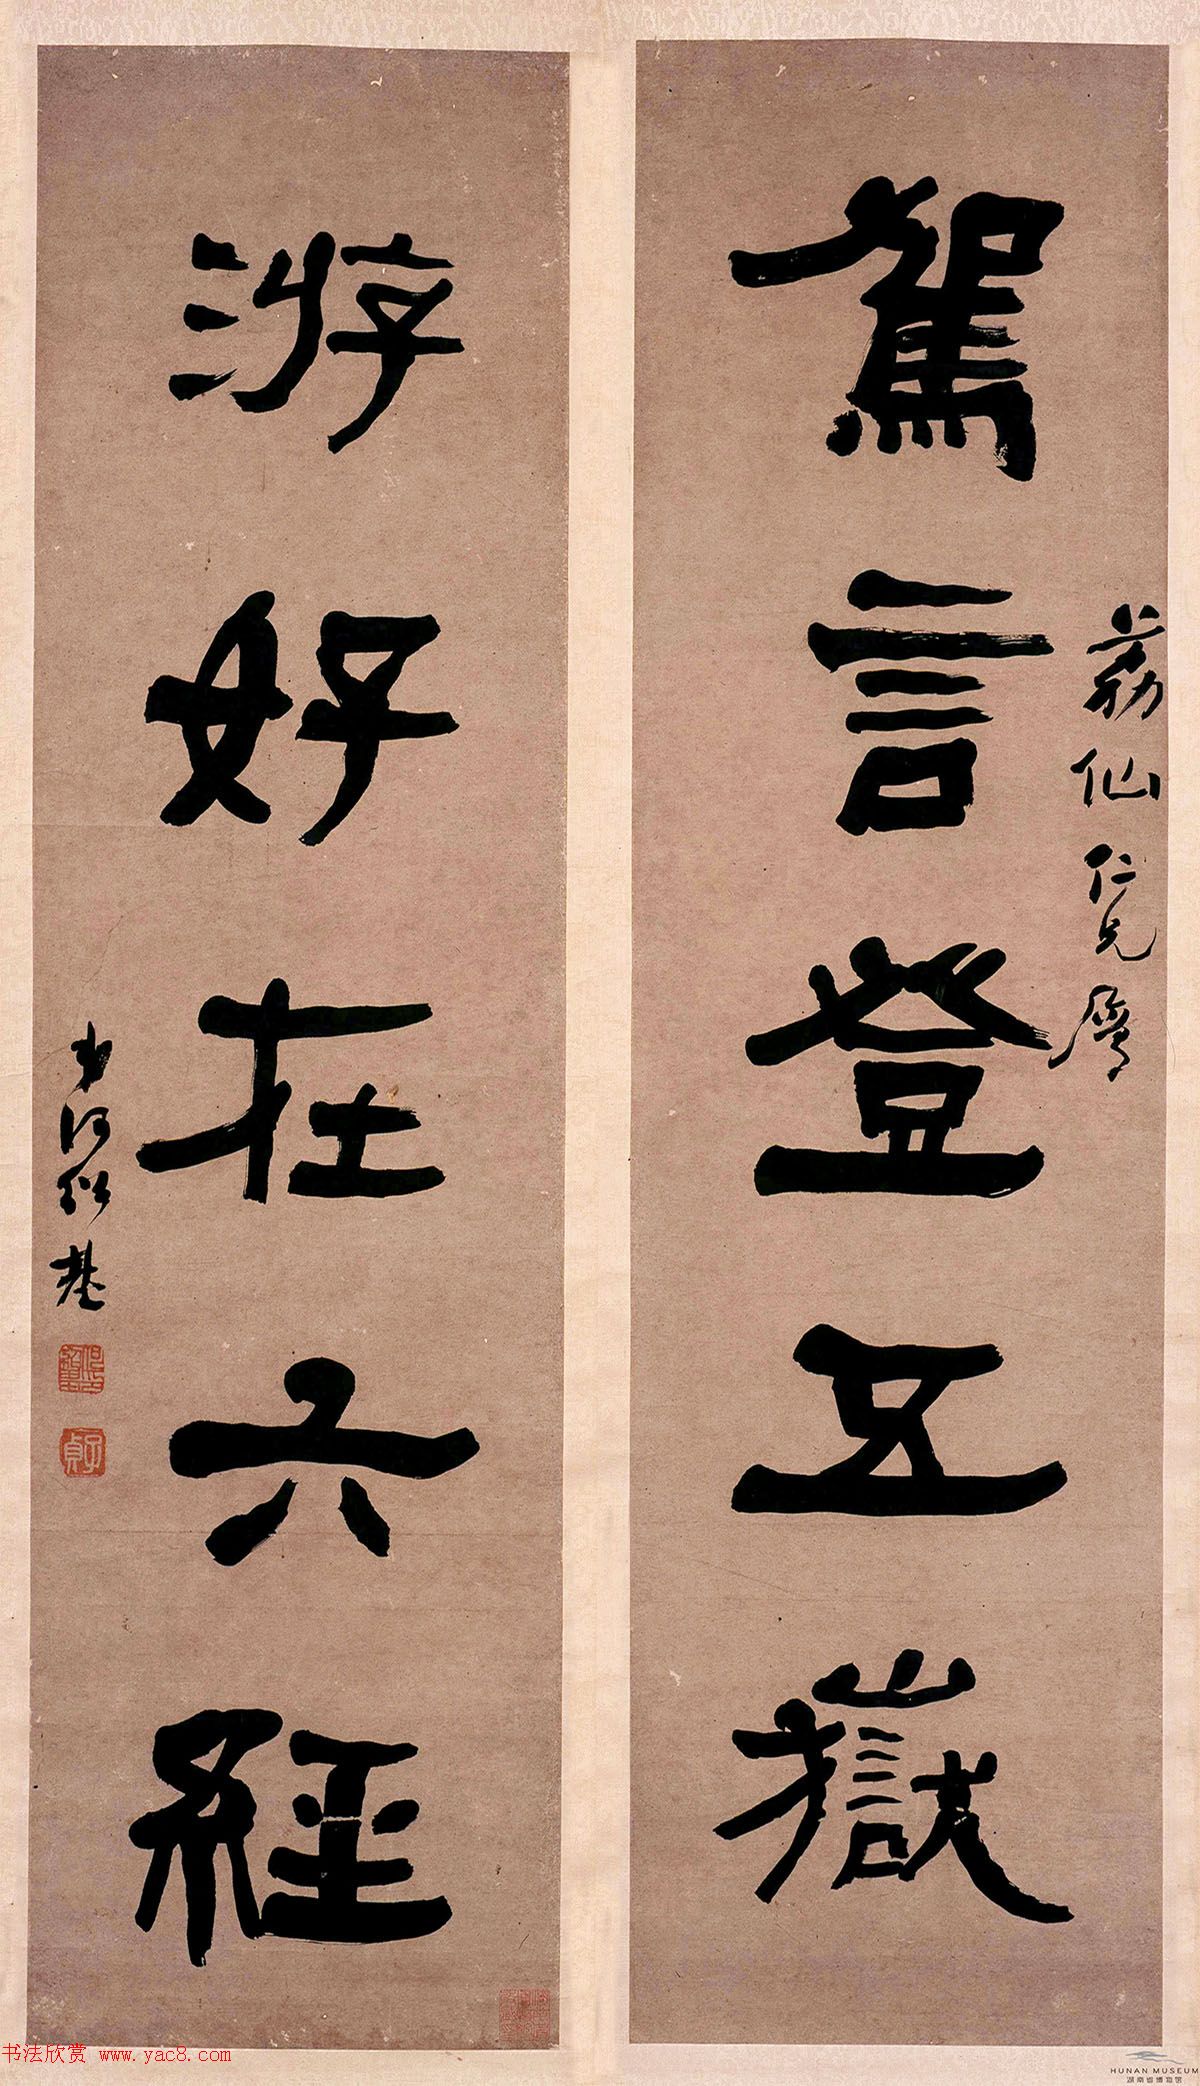 荔仙仁兄屬
駕言登五嶽
游好在六經
弟何紹基
何紹基印
子貞
书法欣赏 www.yac8.com
HUNAN MUSEUM
湖南省博物馆